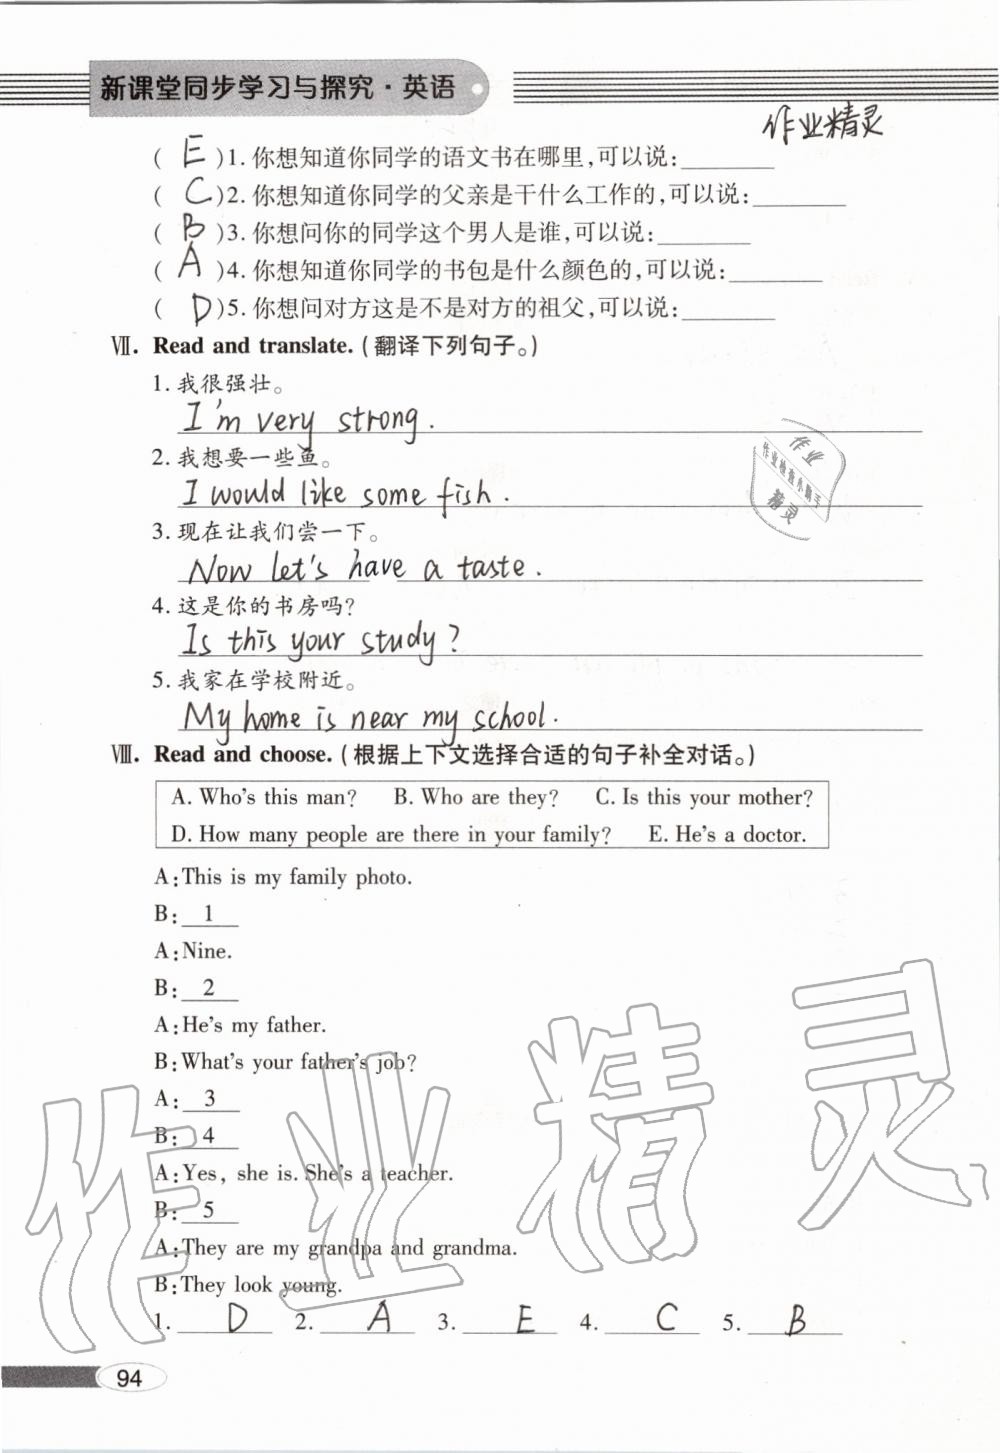 新课堂同步学习与探究·英语
作业精灵
( E )1. 你想知道你同学的语文书在哪里,可以说:
( C )2. 你想知道你同学的父亲是干什么工作的,可以说:
( B )3. 你想问你的同学这个男人是谁,可以说:
( A )4. 你想知道你同学的书包是什么颜色的,可以说:
( D )5. 你想问对方这是不是对方的祖父,可以说:
Ⅶ. Read and translate. (翻译下列句子。)
1. 我很强壮。
I'm very strong.
2. 我想要一些鱼。
I would like some fish.
3. 现在让我们尝一下。
Now let's have a taste.
4. 这是你的书房吗?
Is this your study?
5. 我家在学校附近。
My home is near my school.
作业
作业检查小助手
精灵
Ⅷ. Read and choose. (根据上下文选择合适的句子补全对话。)
A. Who's this man? B. Who are they? C. Is this your mother?
D. How many people are there in your family? E. He's a doctor.
A: This is my family photo.
B: 1
A: Nine.
B: 2
A: He's my father.
B: What's your father's job?
A: 3
B: 4
A: Yes, she is. She's a teacher.
B: 5
A: They are my grandpa and grandma.
B: They look young.
1. D 2. A 3. E 4. C 5. B
作业精灵
94